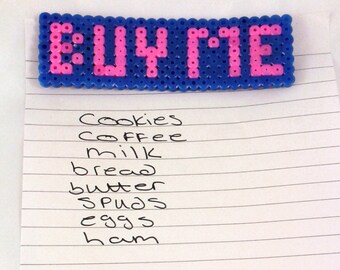 BUY ME
cookies
coffee
milk
bread
butter
spuds
eggs
ham